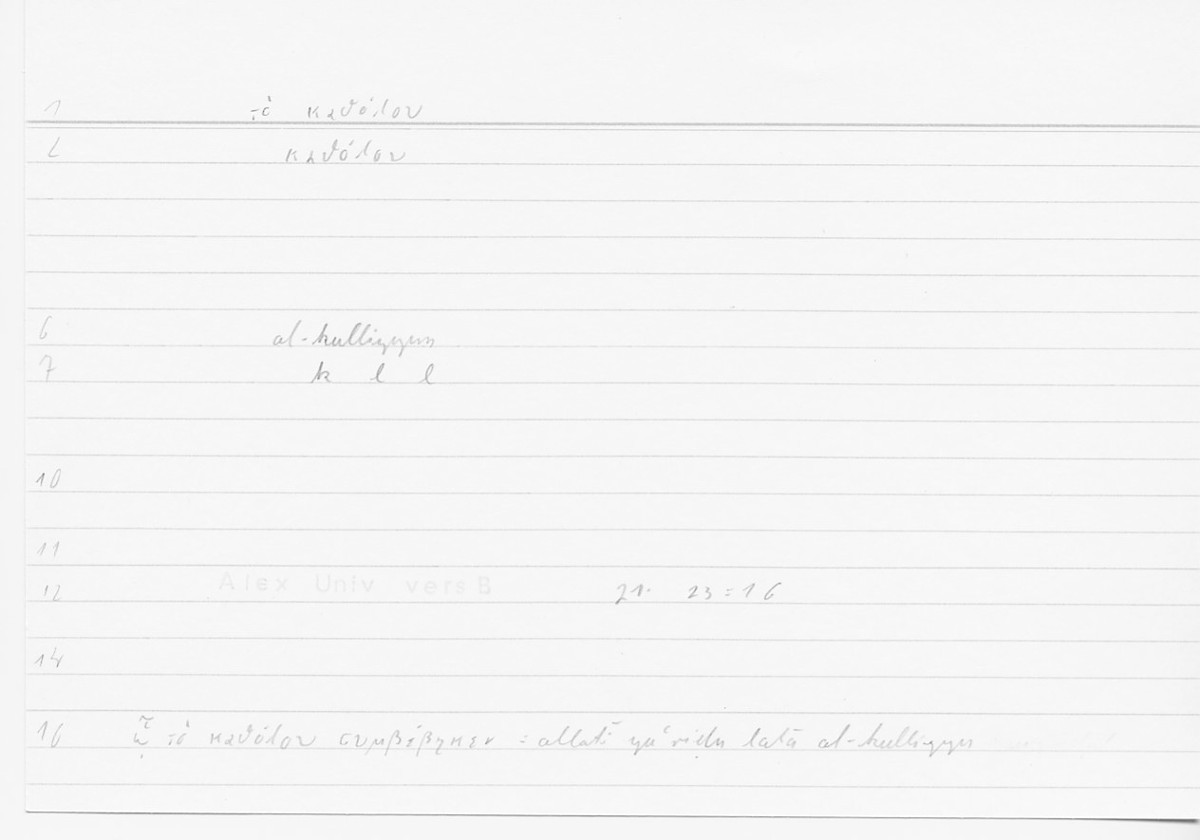 1 τὸ καθόλου
2 καθόλου
6 al-kulliyyun
7 k l l
10
11
12 Alex Univ vers B 21. 23 = 16
14
16 ᾧ τὸ καθόλου συμβέβηκεν = allatī yaʿriḍu al-kulliyyu